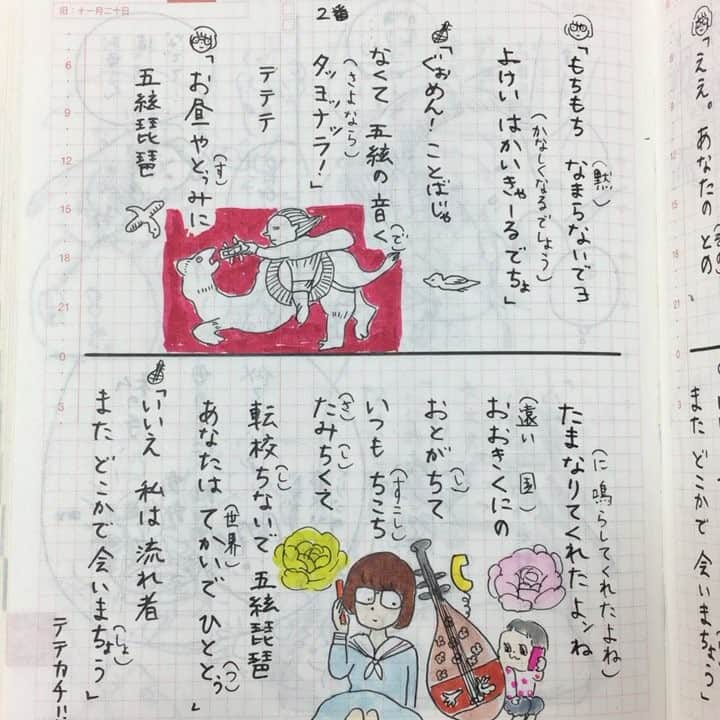 旧:十一月二十日
2番
「ええ。あなたの との
また どこかで 会いまちょう」
(黙)
「もちもち なまらないでヨ
(かなしくなるでしょう)
よけい はかいきゃーるでちょ」
「ぐぉめん! ことばじゃ
なくて 五絃の音く(で)
(さよなら)
タッョナッラ!」
テテテ
(す)
「お昼やとぅみに
五絃琵琶
(に鳴らしてくれたよね)
たまなりてくれたよンね
(遠い 国)
おおきくにの
(し)
おとがちて
(すこし)
いつも ちこち
(さ)(し)
たみちくて
(し)
転校ちないで 五絃琵琶
(世界)(つ)
あなたは てかいで ひととぅ」
「いいえ 私は流れ者
(しょ)
また どこかで会いまちょう」
テテカチ!!
6
9
12
15
18
21
0
3